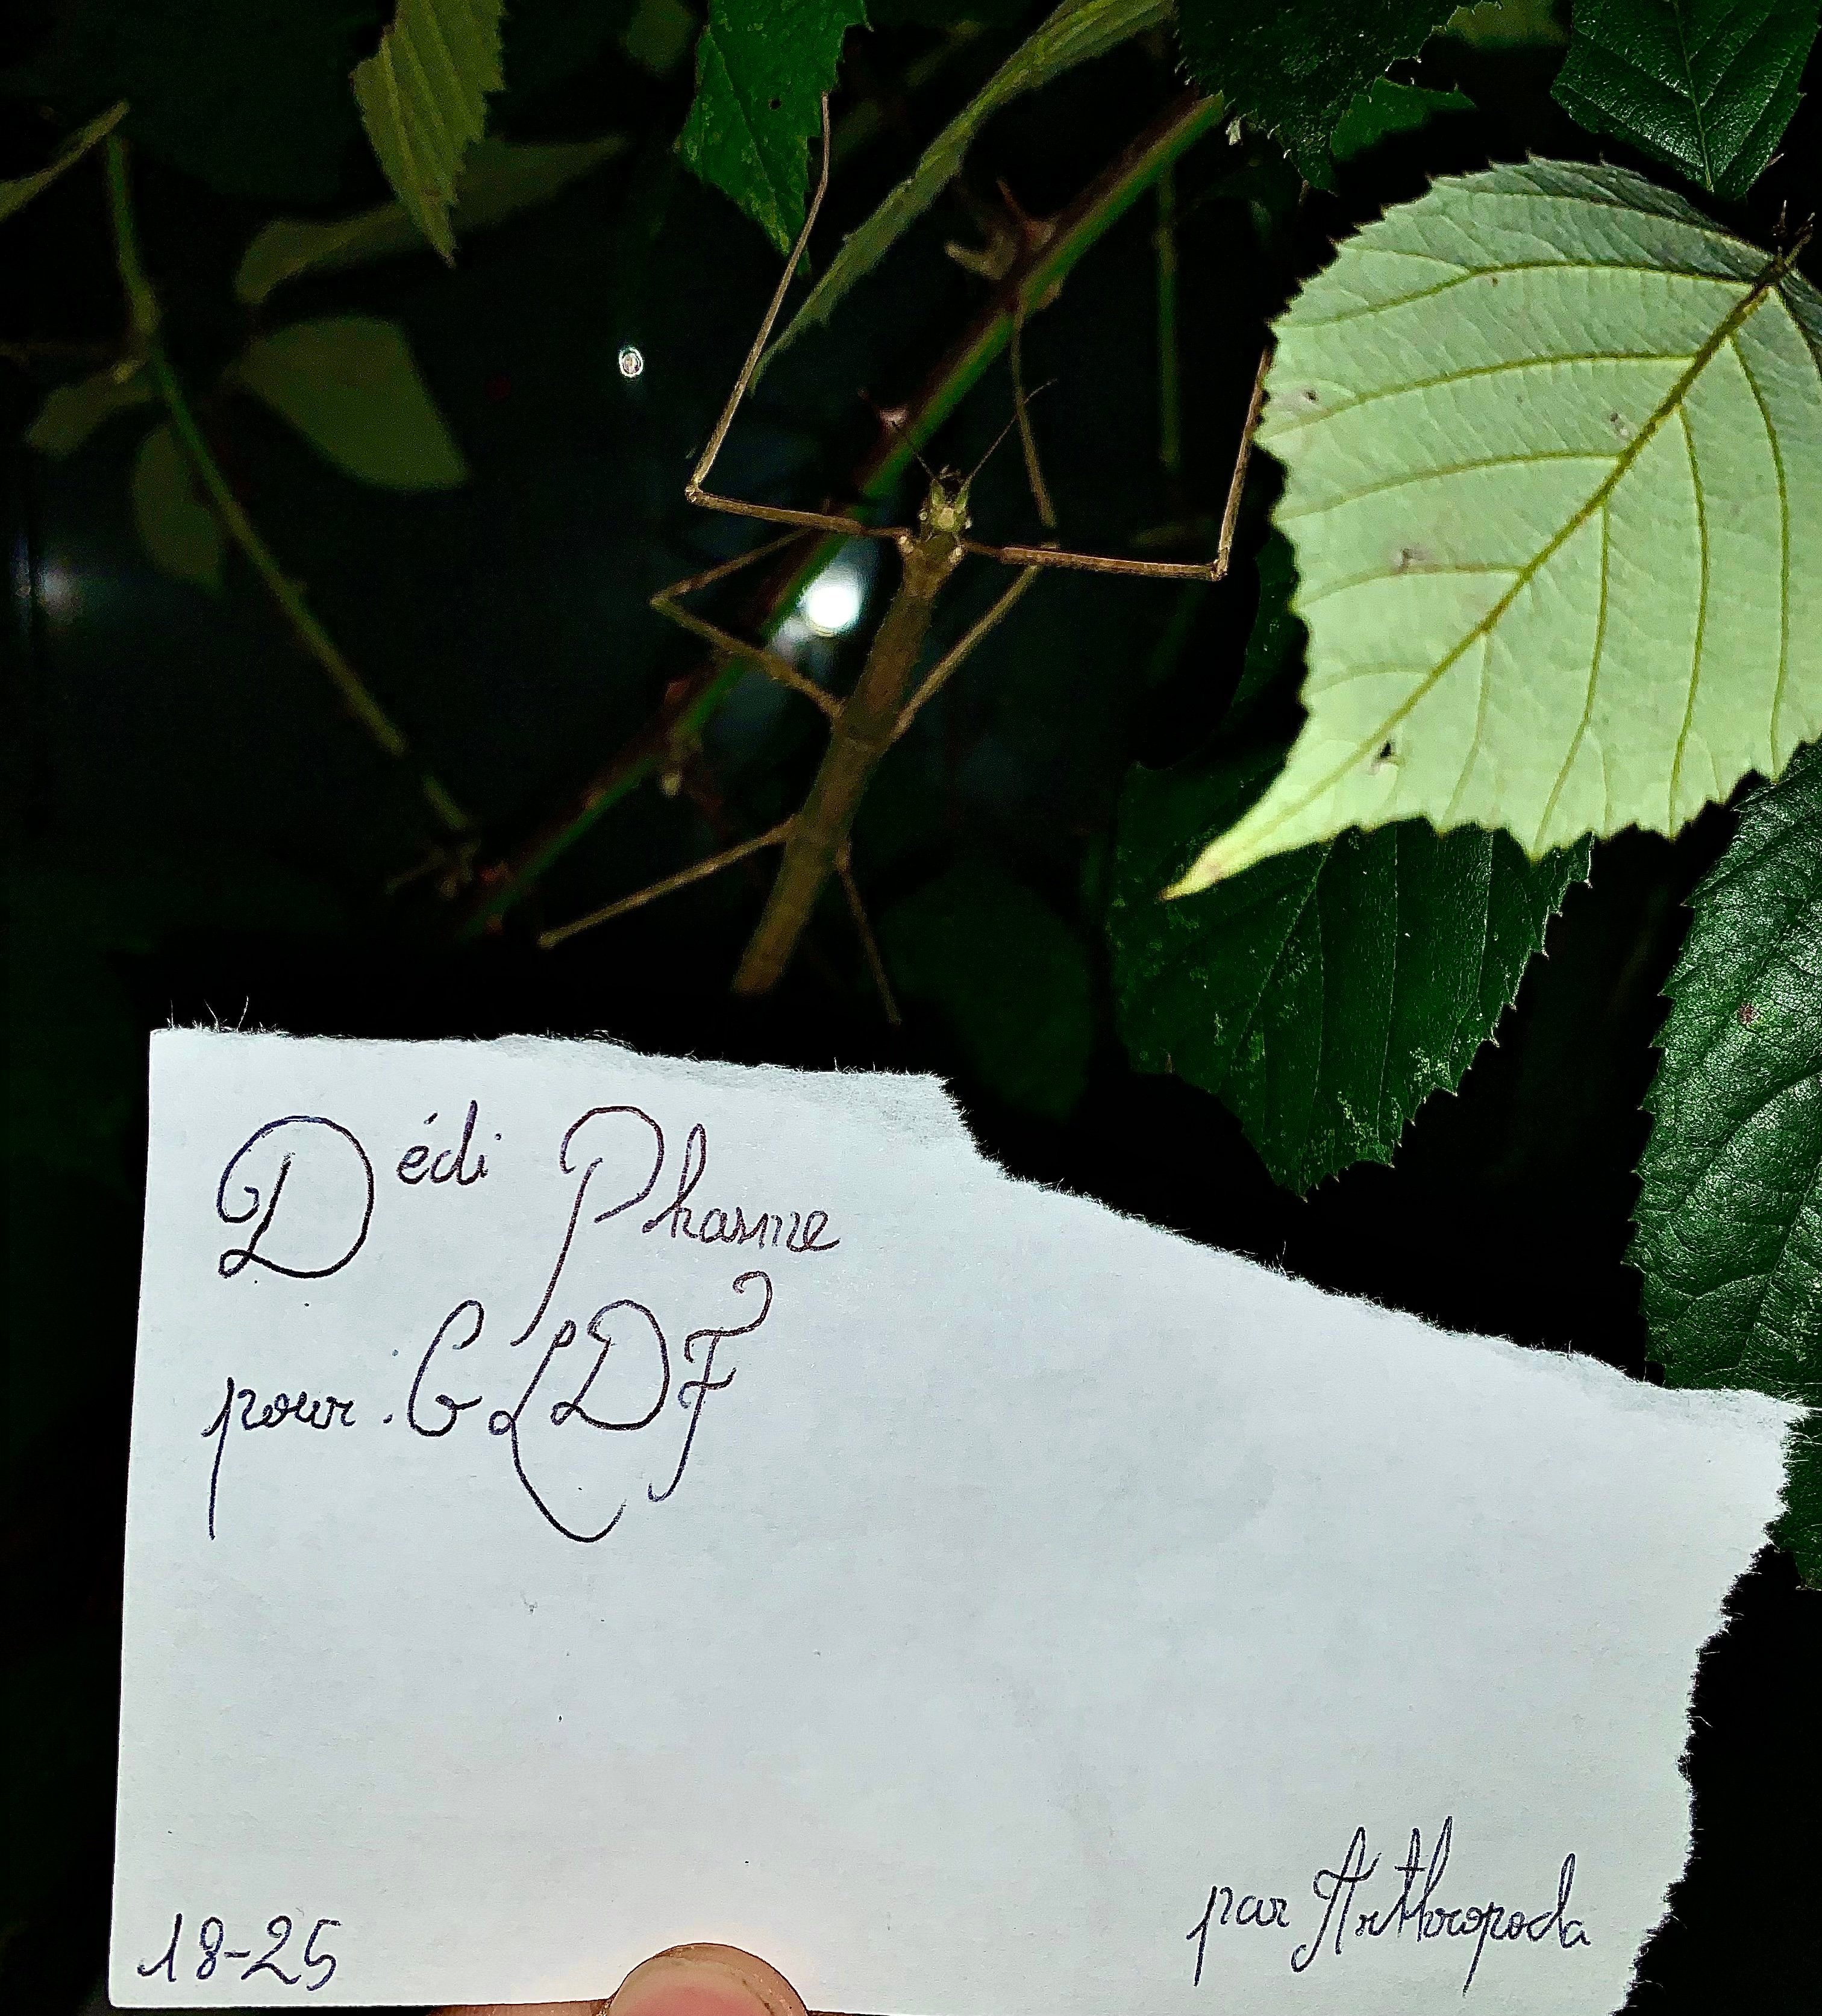 Dédi Phasme
pour : GLDF
18-25
par Arthropoda